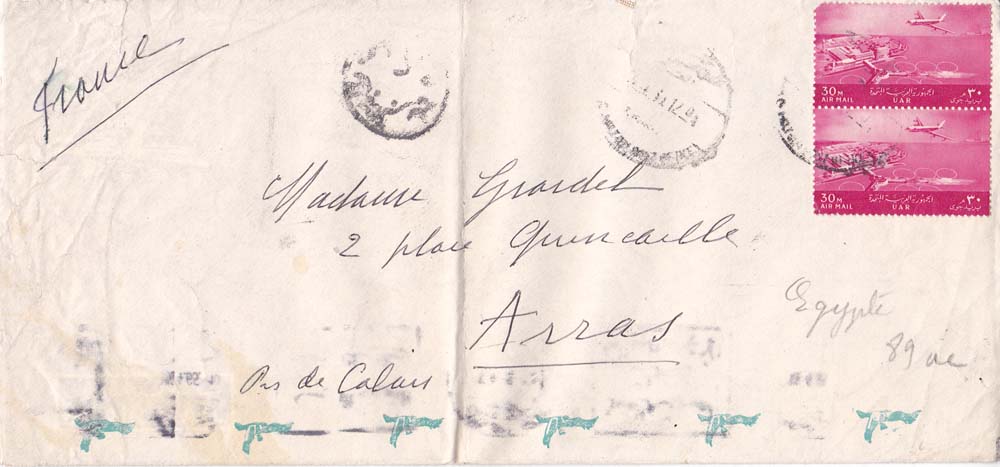 France
30 M
AIR MAIL
الجمهورية العربية المتحدة
UAR
٣٠ م
بريد جوى
30 M
AIR MAIL
الجمهورية العربية المتحدة
UAR
٣٠ م
بريد جوى
Madame Grardel
2 place Quincaille
Arras
Pas de Calais
Egypte
89